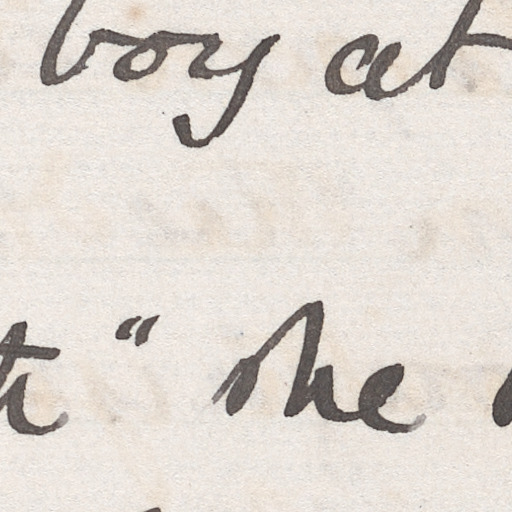 boy at
" she